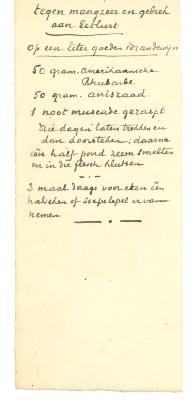 tegen maagzeer en gebrek
aan Eetlust
Op een liter goeden Brandewijn
50 gram. Amerikaansche
Rhubarbe
50 gram. aniszaad.
1 noot muscade geraspt
Drie dagen laten trekken en
dan doorsteken, daarna
één half pond zeem smelten
en in die flesch klutsen
3 maal daags voor eten één
halven of soepelepel ervan
nemen